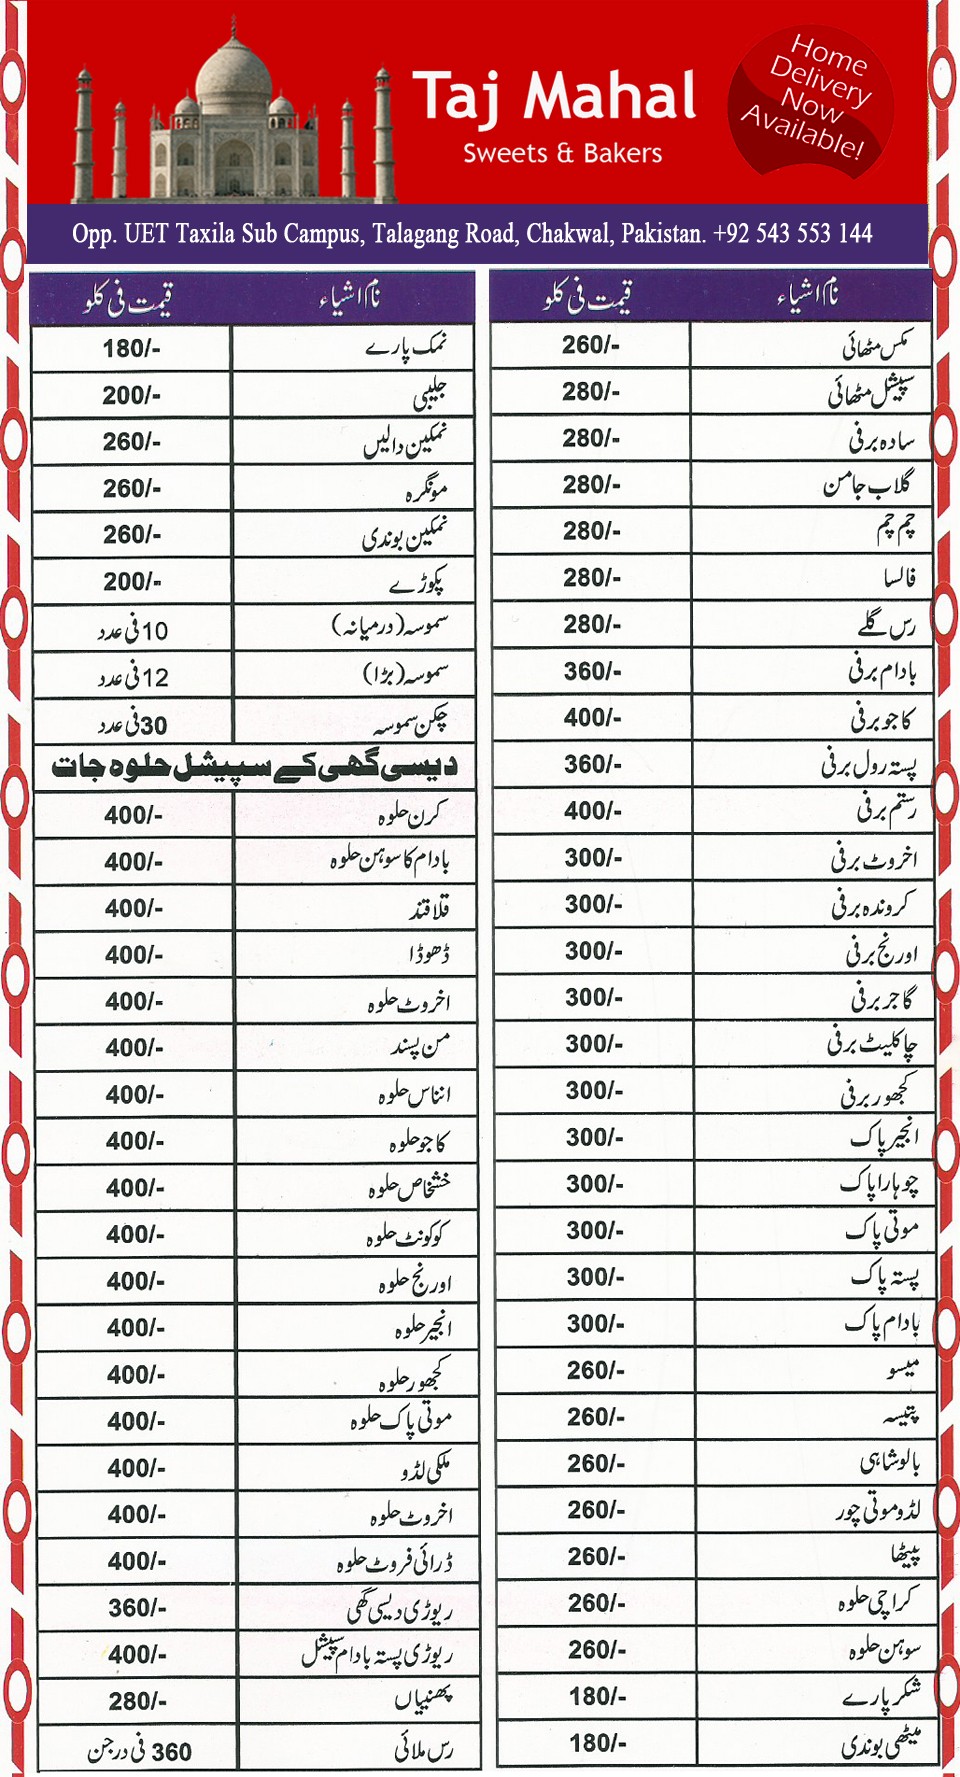 Taj Mahal
Sweets & Bakers
Home
Delivery
Now
Available!
Opp. UET Taxila Sub Campus, Talagang Road, Chakwal, Pakistan. +92 543 553 144
نام اشیاء قیمت فی کلو
مکس مٹھائی 260/-
سپیشل مٹھائی 280/-
سادہ برفی 280/-
گلاب جامن 280/-
چم چم 280/-
فالسا 280/-
رس گلے 280/-
بادام برفی 360/-
کاجو برفی 400/-
پستہ رول برفی 360/-
رستم برفی 400/-
اخروٹ برفی 300/-
کروندہ برفی 300/-
اورنج برفی 300/-
گاجر برفی 300/-
چاکلیٹ برفی 300/-
کھجور برفی 300/-
انجیر پاک 300/-
چوہارا پاک 300/-
موتی پاک 300/-
پستہ پاک 300/-
بادام پاک 300/-
میسو 260/-
پتیسہ 260/-
بالوشاہی 260/-
لڈو موتی چور 260/-
پیٹھا 260/-
کراچی حلوہ 260/-
سوہن حلوہ 260/-
شکر پارے 180/-
میٹھی بوندی 180/-
نام اشیاء قیمت فی کلو
نمک پارے 180/-
جلیبی 200/-
نمکین دالیں 260/-
مونگرہ 260/-
نمکین بوندی 260/-
پکوڑے 200/-
سموسہ (درمیانہ) 10 فی عدد
سموسہ (بڑا) 12 فی عدد
چکن سموسہ 30 فی عدد
دیسی گھی کے سپیشل حلوہ جات
کرن حلوہ 400/-
بادام کا سوہن حلوہ 400/-
قلاقند 400/-
ڈھوڈا 400/-
اخروٹ حلوہ 400/-
من پسند 400/-
انناس حلوہ 400/-
کاجو حلوہ 400/-
خشخاص حلوہ 400/-
کوکونٹ حلوہ 400/-
اورنج حلوہ 400/-
انجیر حلوہ 400/-
کھجور حلوہ 400/-
موتی پاک حلوہ 400/-
ملکی لڈو 400/-
اخروٹ حلوہ 400/-
ڈرائی فروٹ حلوہ 400/-
ریوڑی دیسی گھی 360/-
ریوڑی پستہ بادام سپیشل 400/-
پھنیاں 280/-
رس ملائی 360 فی درجن